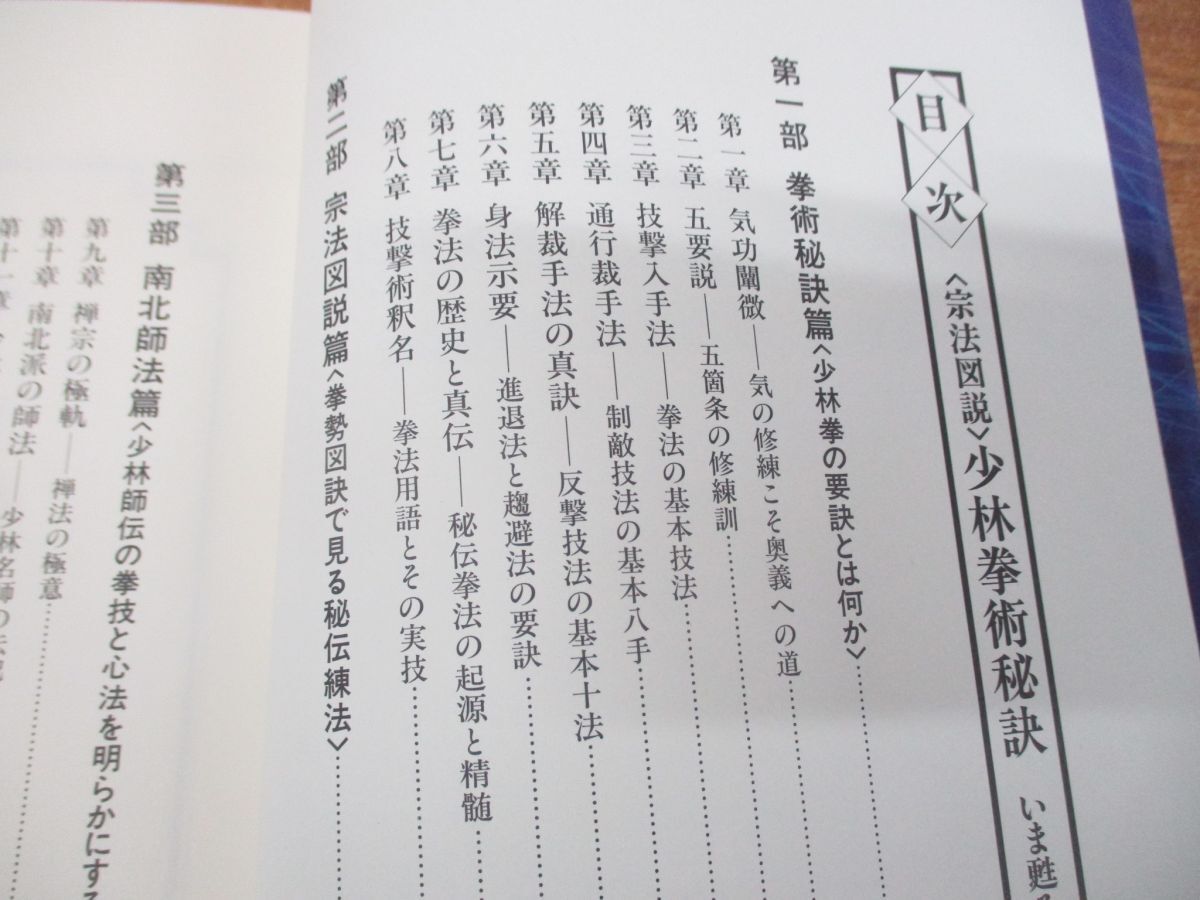 目次
〈宗法図説〉少林拳術秘訣 いま甦
第一部 拳術秘訣篇〈少林拳の要訣とは何か〉
第一章 気功闡微――気の修練こそ奥義への道
第二章 五要説――五箇条の修練訓
第三章 技撃入手法――拳法の基本技法
第四章 通行裁手法――制敵技法の基本八手
第五章 解裁手法の真訣――反撃技法の基本十法
第六章 身法示要――進退法と趨避法の要訣
第七章 拳法の歴史と真伝――秘伝拳法の起源と精髄
第八章 技撃術釈名――拳法用語とその実技
第二部 宗法図説篇〈拳勢図訣で見る秘伝練法〉
第三部 南北師法篇〈少林師伝の拳技と心法を明らかにする
第九章 禅宗の極軌――禅法の極意
第十章 南北派の師法――少林名師の
第十一章